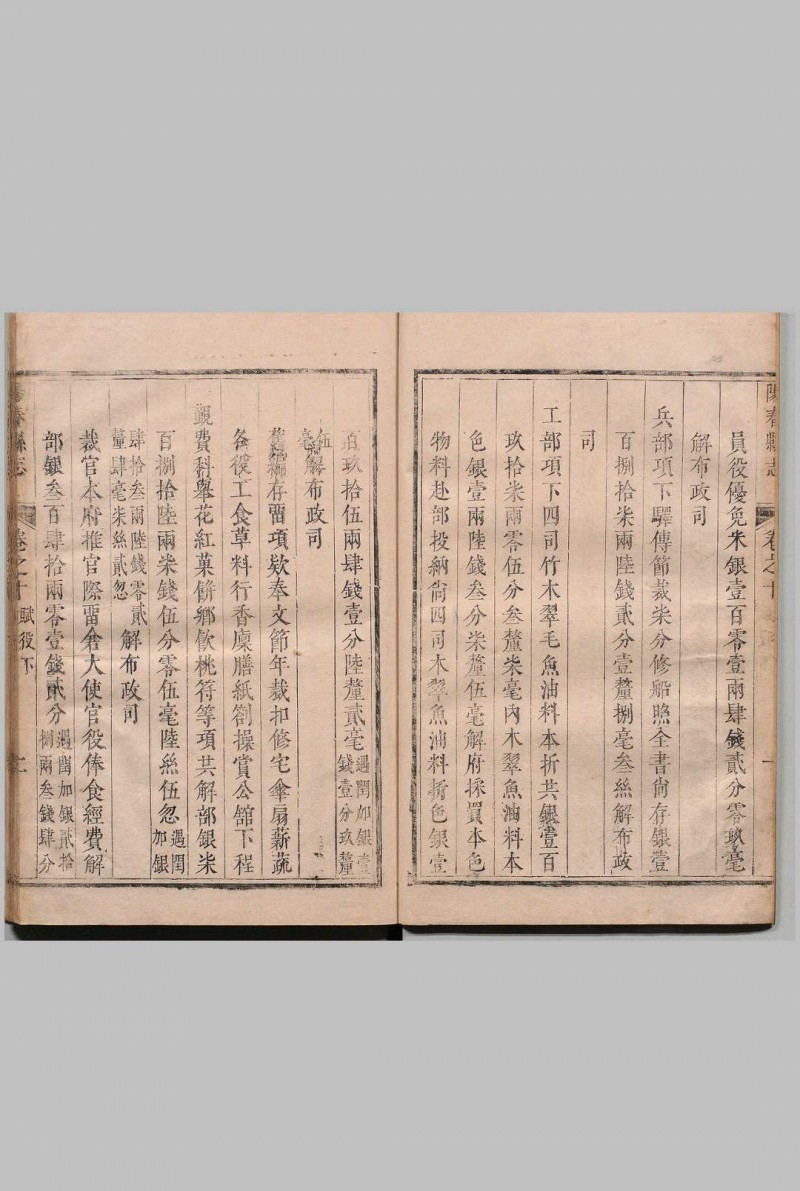 陽春縣志
卷之十
員役優免米銀壹百零壹兩肆錢貳分零玖毫
解布政司
兵部項下驛傳節裁柒分修船照全書尙存銀壹
百捌拾柒兩陸錢貳分壹釐捌毫叁絲解布政
司
工部項下四司竹木翠毛魚油料本折共銀壹百
玖拾柒兩零伍分叁釐柒毫內木翠魚油料本
色銀壹兩陸錢叁分柒釐伍毫解府採買本色
物料赴部投納尙四司木翠魚油料折色銀壹
百玖拾伍兩肆錢壹分陸釐貳毫遇閏加銀壹
錢壹分玖釐
伍毫解布政司
舊編存畱項欵奉文節年裁扣修宅傘扇薪蔬
各役工食草料行香廩膳紙劄操賞公舘下程
覲費科舉花紅菓餅鄉飮桃符等項共解部銀柒
百捌拾陸兩柒錢伍分零伍毫陸絲伍忽遇閏
加銀
肆拾叁兩陸錢零貳
釐肆毫柒絲貳忽解布政司
裁官本府推官際畱倉大使官役俸食經費解
部銀叁百肆拾兩零壹錢貳分遇閏加銀貳拾
捌兩叁錢肆分
陽春縣志
卷之十
賦役下